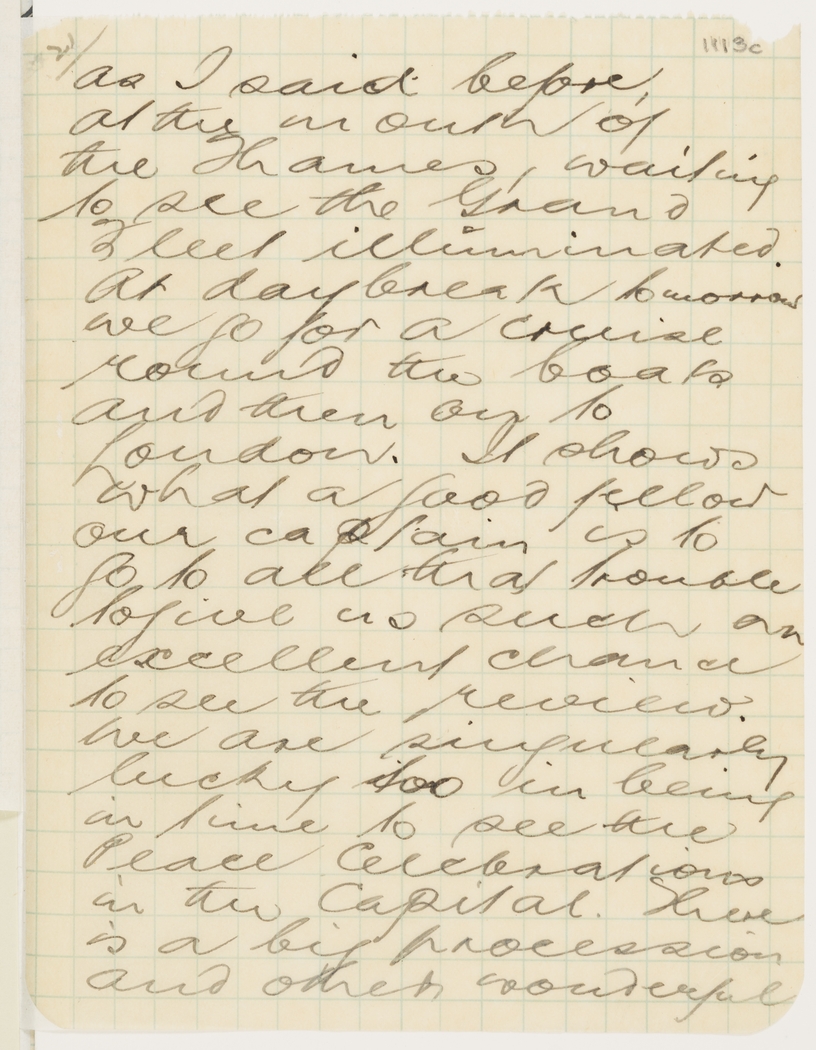 2)/
1113c
as I said before,
at the mouth of
the Thames, waiting
to see the Grand
Fleet illuminated.
At daybreak tomorrow
we go for a cruise
round the boats
and then on to
London. It shows
what a good fellow
our captain is to
go to all that trouble
to give us such an
excellent chance
to see the review.
We are singularly
lucky too in being
in time to see the
Peace Celebrations
in the Capital. There
is a big procession
and other wonderful